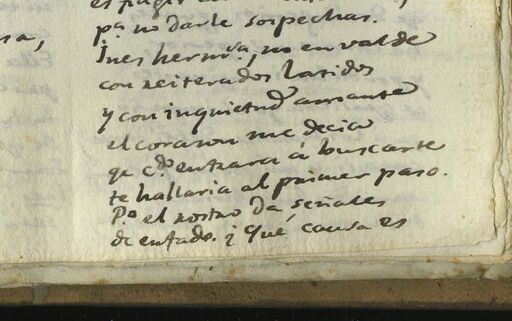 sa,
pª. no darle sospechas.
Ines hermᵃ, no en valde
con reiterados latidos
y con inquietud amante
el corason me decia
qe cdo entrara á buscarte
te hallaria al primer paso.
Po el rostro da señales
de enfado. ¿ Qué causa es